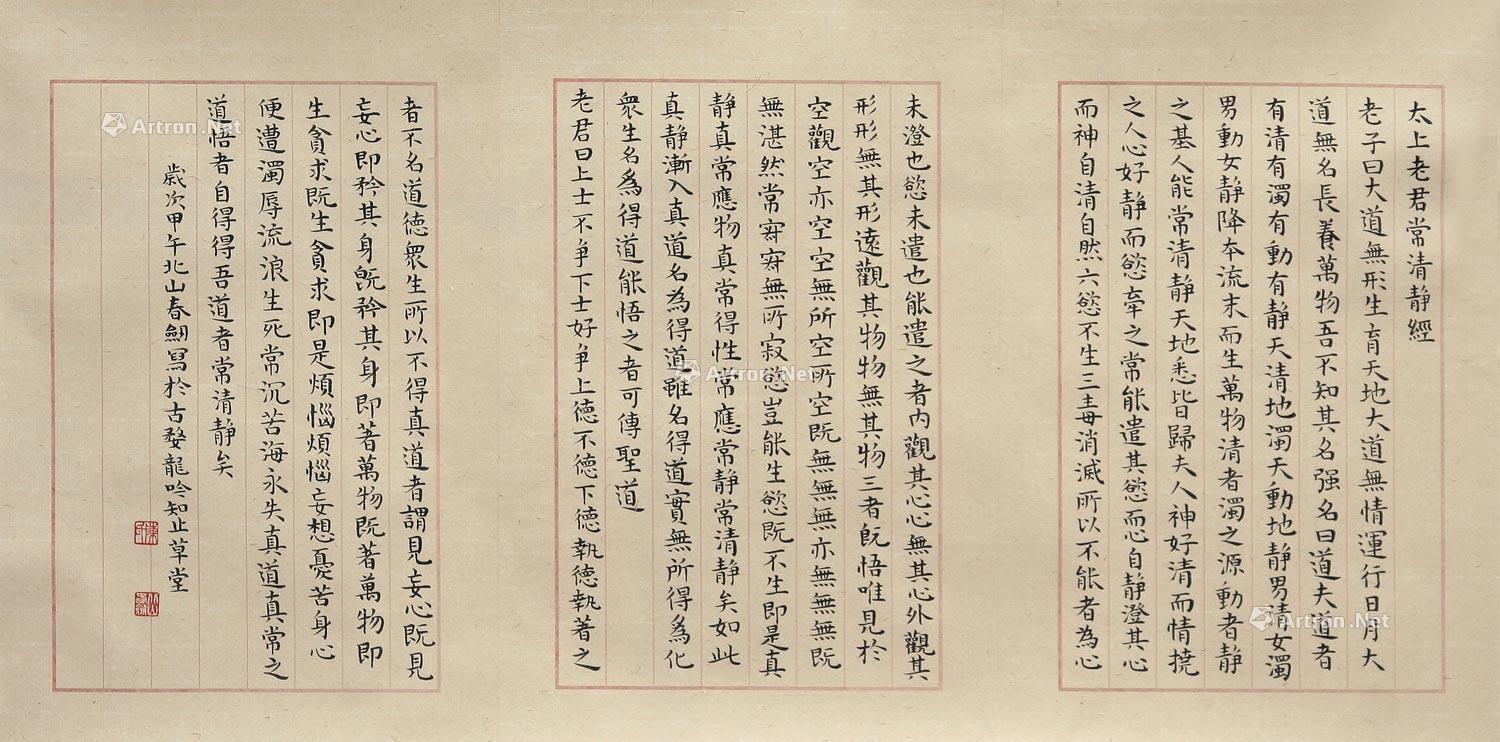 太上老君常清静經
老子曰大道無形生育天地大道無情運行日月大
道無名長養萬物吾不知其名强名曰道夫道者
有清有濁有動有静天清地濁天動地静男清女濁
男動女静降本流末而生萬物清者濁之源動者静
之基人能常清静天地悉皆歸夫人神好清而情撓
之人心好静而慾牽之常能遣其慾而心自静澄其心
而神自清自然六慾不生三毒消滅所以不能者為心
未澄也慾未遣也能遣之者内觀其心心無其心外觀其
形形無其形遠觀其物物無其物三者既悟唯見於
空觀空亦空空無所空所空既無無無亦無無無既
無湛然常寂寂無所寂慾豈能生慾既不生即是真
静真常應物真常得性常應常静常清静矣如此
真静漸入真道名為得道雖名得道實無所得為化
衆生名為得道能悟之者可傳聖道
老君曰上士不争下士好争上德不德下德執德執著之
者不名道德衆生所以不得真道者謂見妄心既見
妄心即矜其身既矜其身即著萬物既著萬物即
生貪求既生貪求即是煩惱煩惱妄想憂苦身心
便遭濁辱流浪生死常沉苦海永失真道真常之
道悟者自得得吾道者常清静矣
歲次甲午北山春朙寫於古婺龍吟知止草堂
Artron.Net
Artron.Net
Artron.Net